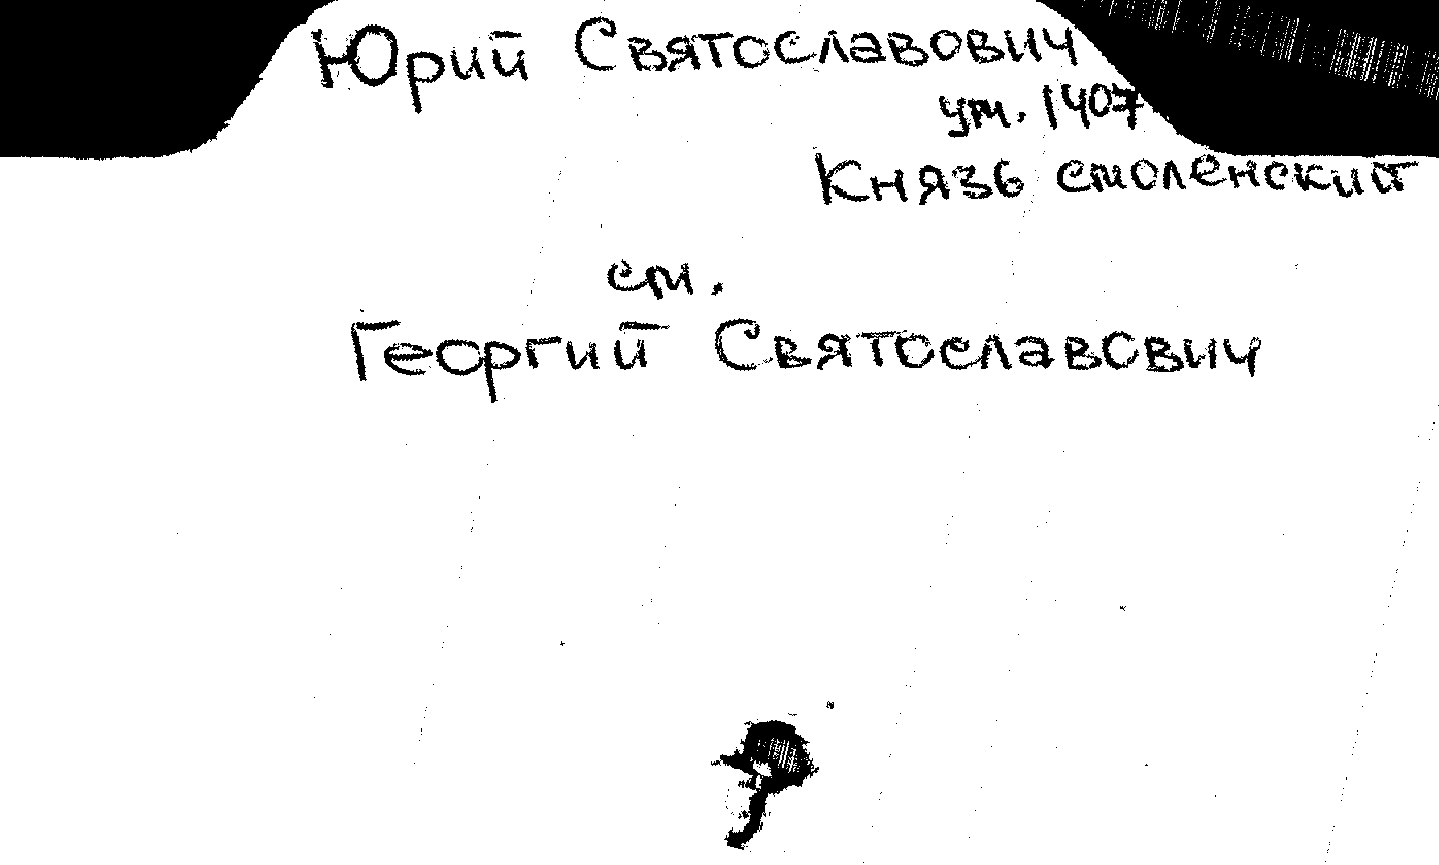 Юрий Святославович
ум. 1407
Князь смоленский
см.
Георгий Святославович